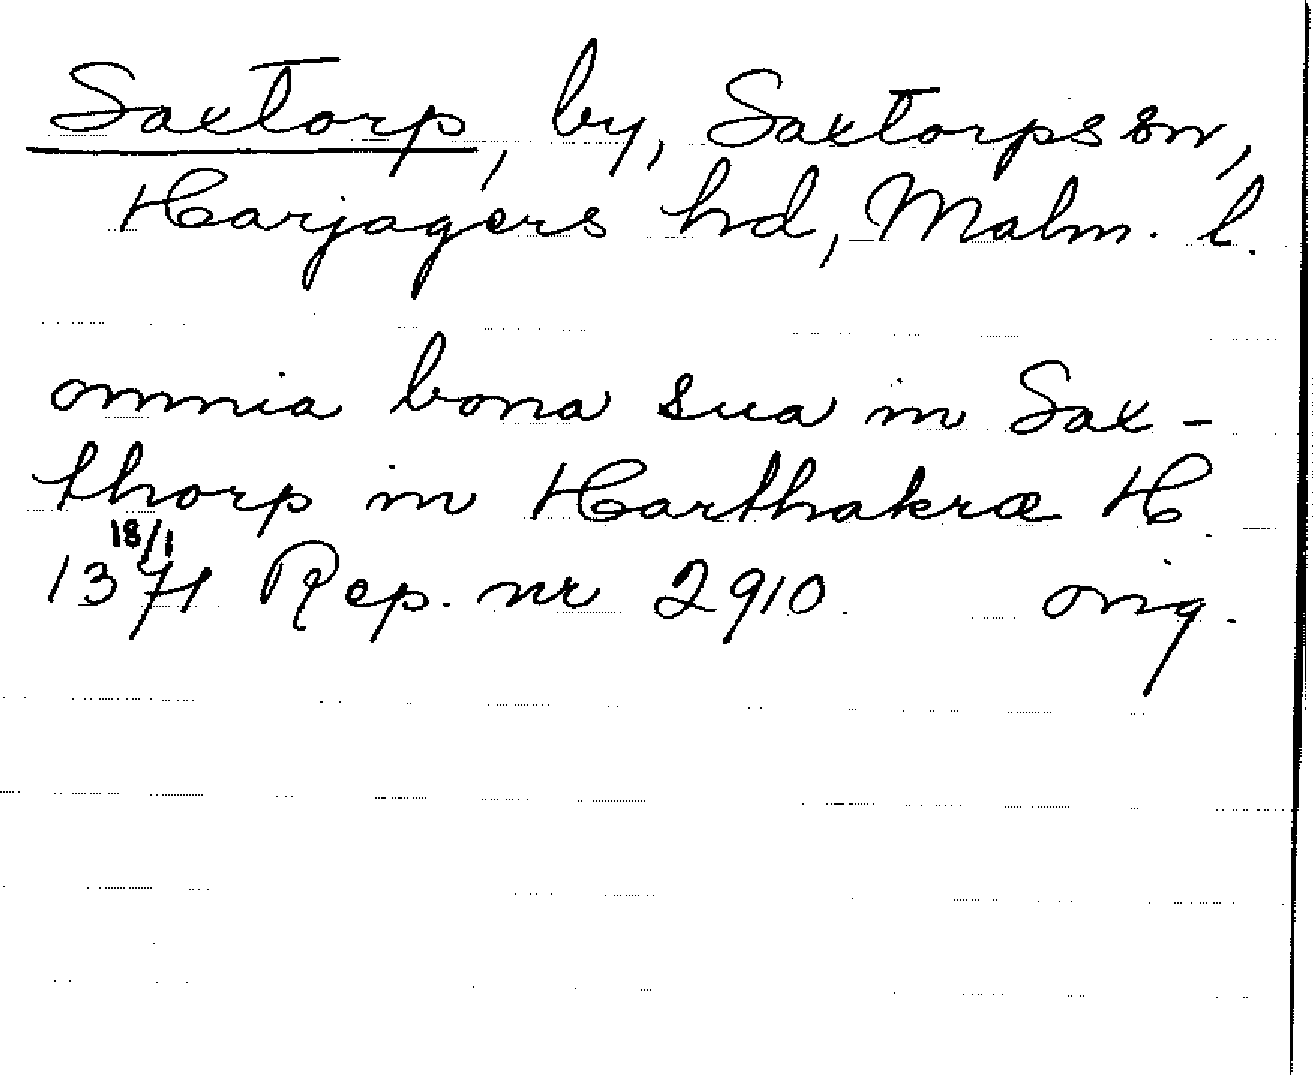 Saxtorp, by, Saxtorps sn,
Harjagers hd, Malm. l.
omnia bona sua in Sax-
thorp in Harthakræ H.
18/1
1371 Rep. nr 2910. orig.